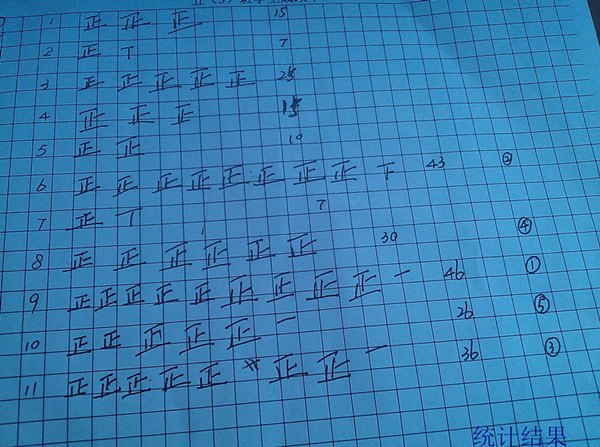 1 正 正 正 15
2 正 丅 7
3 正 正 正 正 正 25
4 正 正 正 15
5 正 正 10
6 正 正 正 正 正 正 正 正 下 43 ②
7 正 丅 7
8 正 正 正 正 正 正 30 ④
9 正 正 正 正 正 正 正 正 正 一 46 ①
10 正 正 正 正 正 一 26 ⑤
11 正 正 正 正 正 正 正 一 36 ③
统计结果